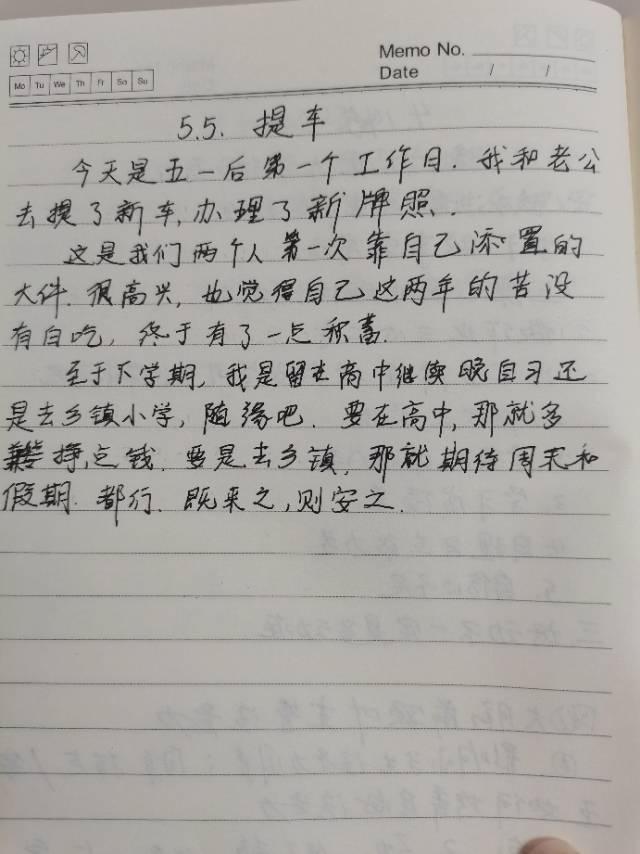 Memo No.
Mo Tu We Th Fr Sa Su
Date / /
5.5. 提车
今天是五一后第一个工作日. 我和老公
去提了新车, 办理了新牌照.
这是我们两个人第一次靠自己添置的
大件. 很高兴, 也觉得自己这两年的苦没
有白吃, 终于有了一点积蓄.
至于下学期, 我是留在高中继续晚自习还
是去乡镇小学, 随缘吧. 要在高中, 那就多
挣点钱. 要是去乡镇, 那就期待周末和
假期. 都行. 既来之, 则安之.